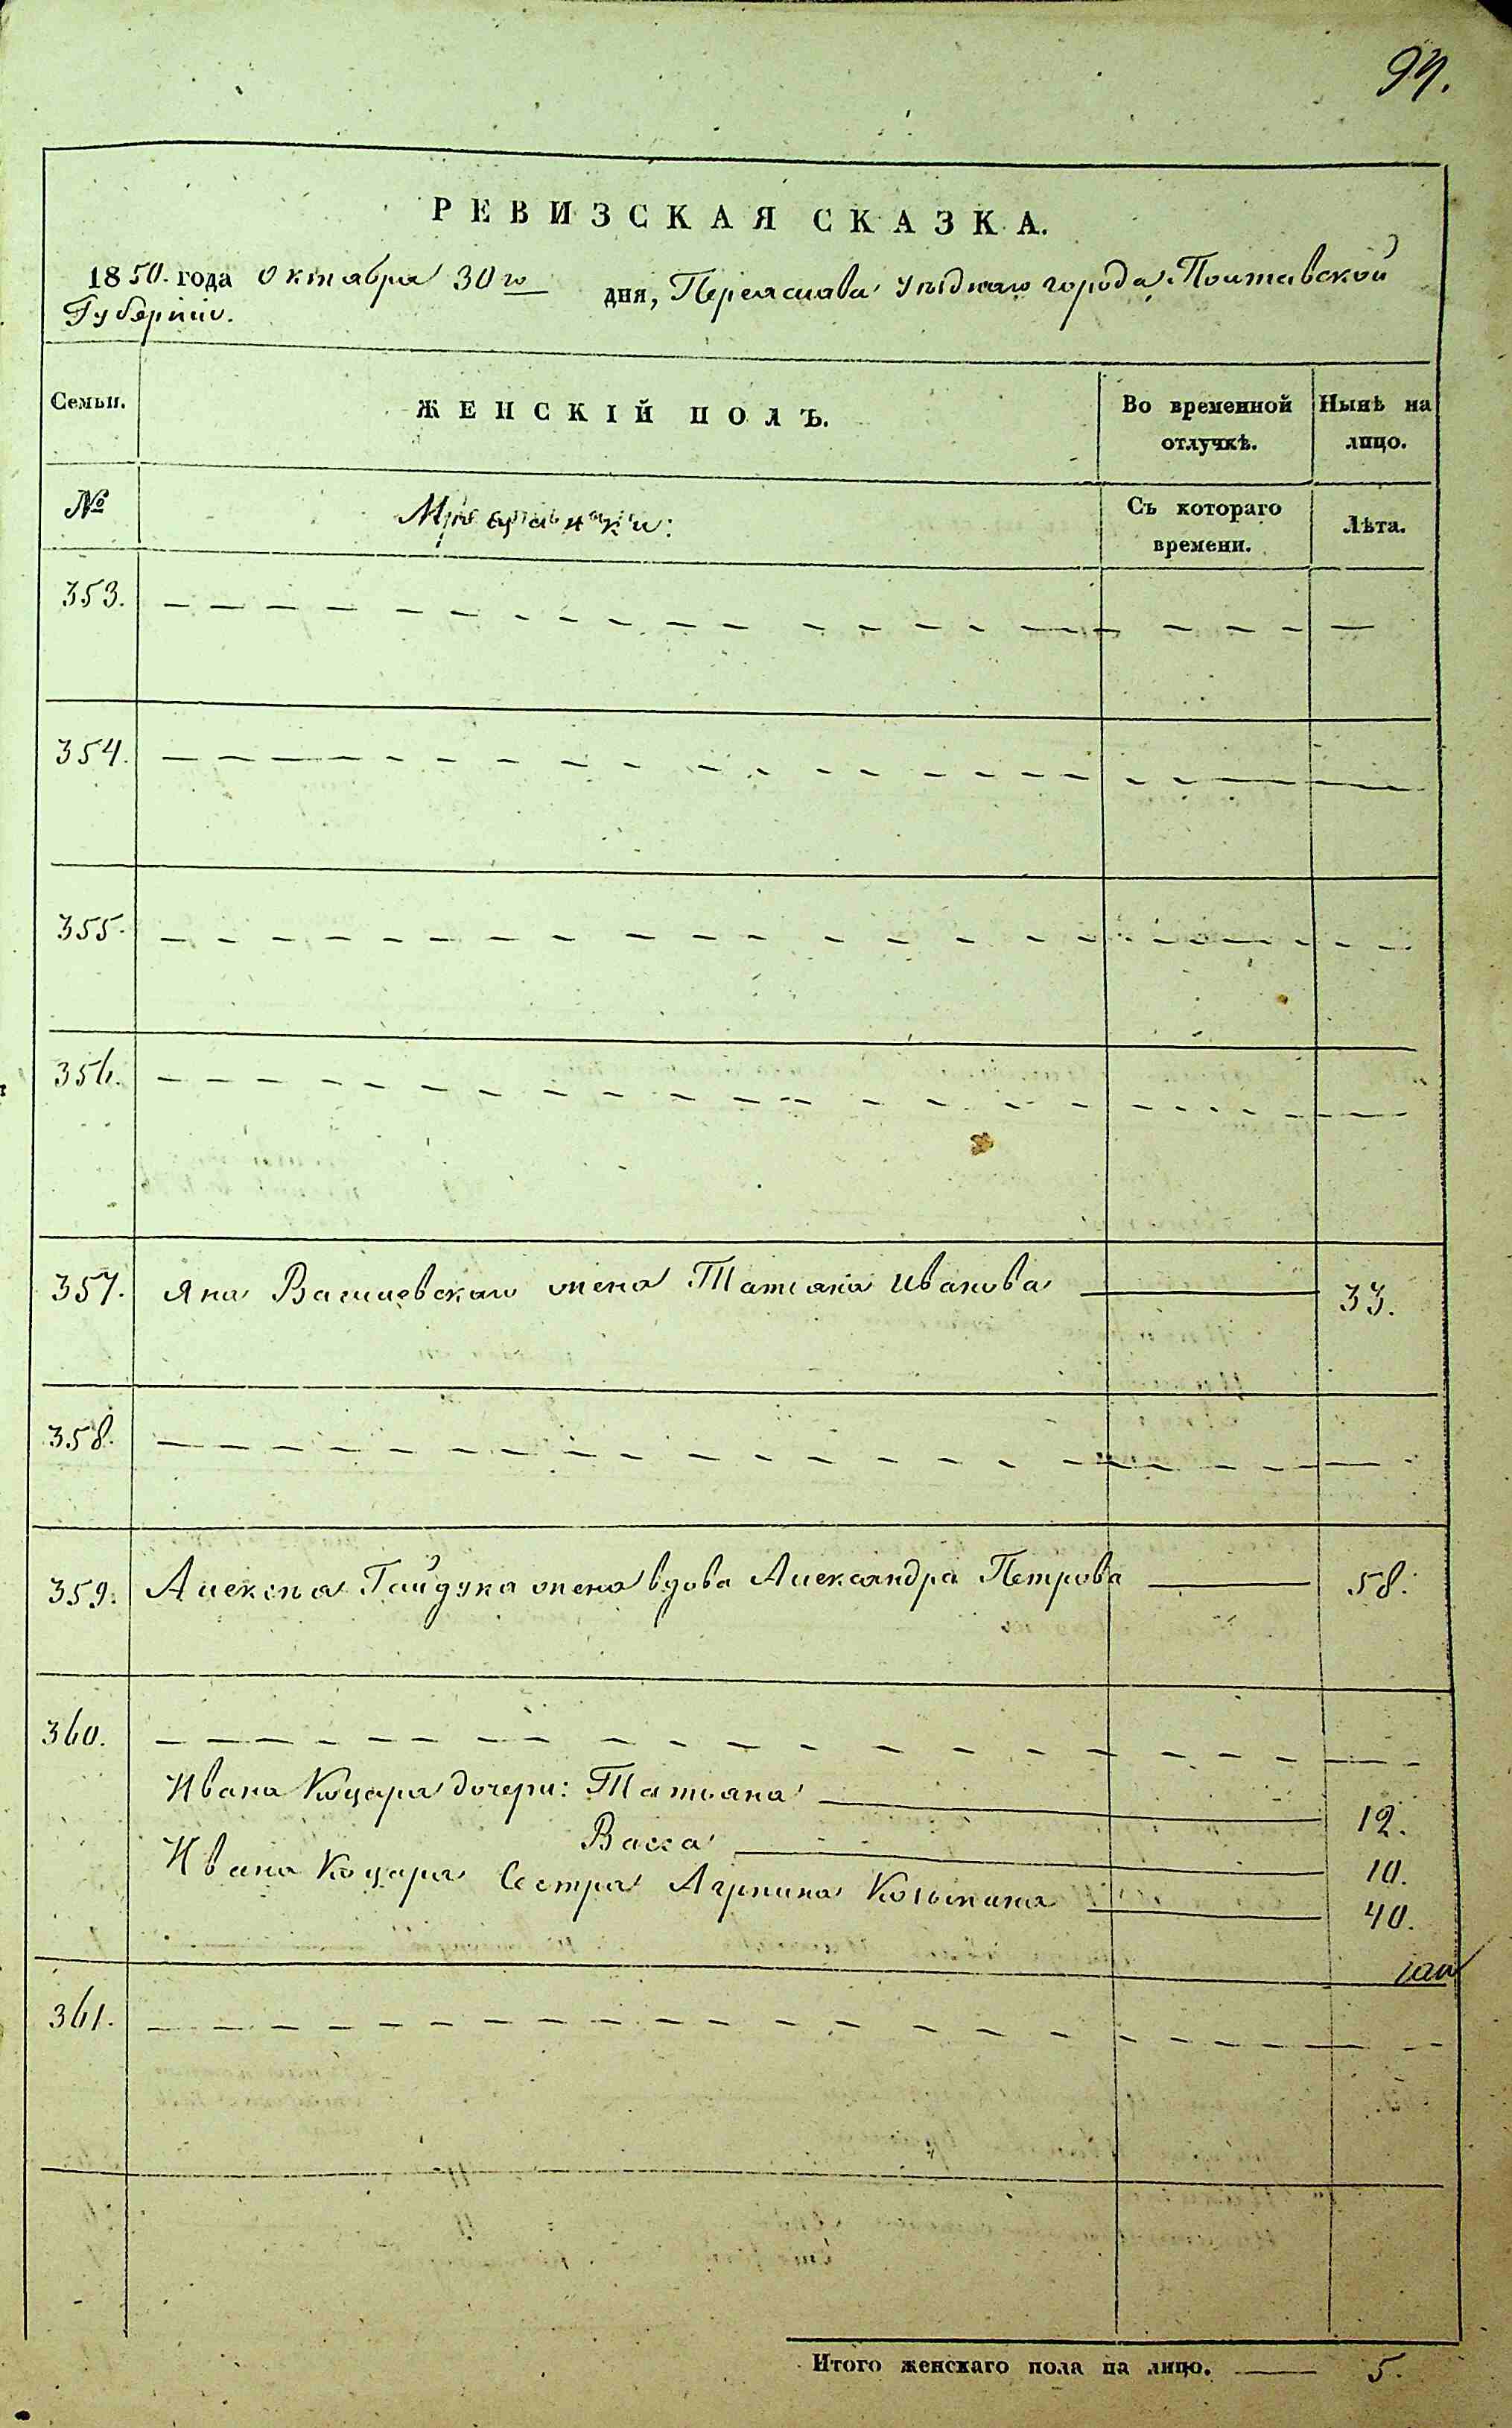 РЕВИЗСКАЯ СКАЗКА.
1850. года Октября 30го дня, Переяслава уѣзднаго города Полтавской
Губерніи.
Семьи.
ЖЕНСКІЙ ПОЛЪ.
Во временной
отлучкѣ.
Нынѣ на
лицо.
№
Съ котораго
времени.
Лѣта.
353.
354.
355.
356.
357. Яна жена Татіана Иванова 33.
358.
359. Алексѣя Гайдука жена вдова Александра Петрова 58.
360.
Ивана Коцара дочери: Татьяна 12.
Васса 10.
Ивана Коцара Сестра Агрипина 40.
361.
Итого женскаго пола на лицо. 5.